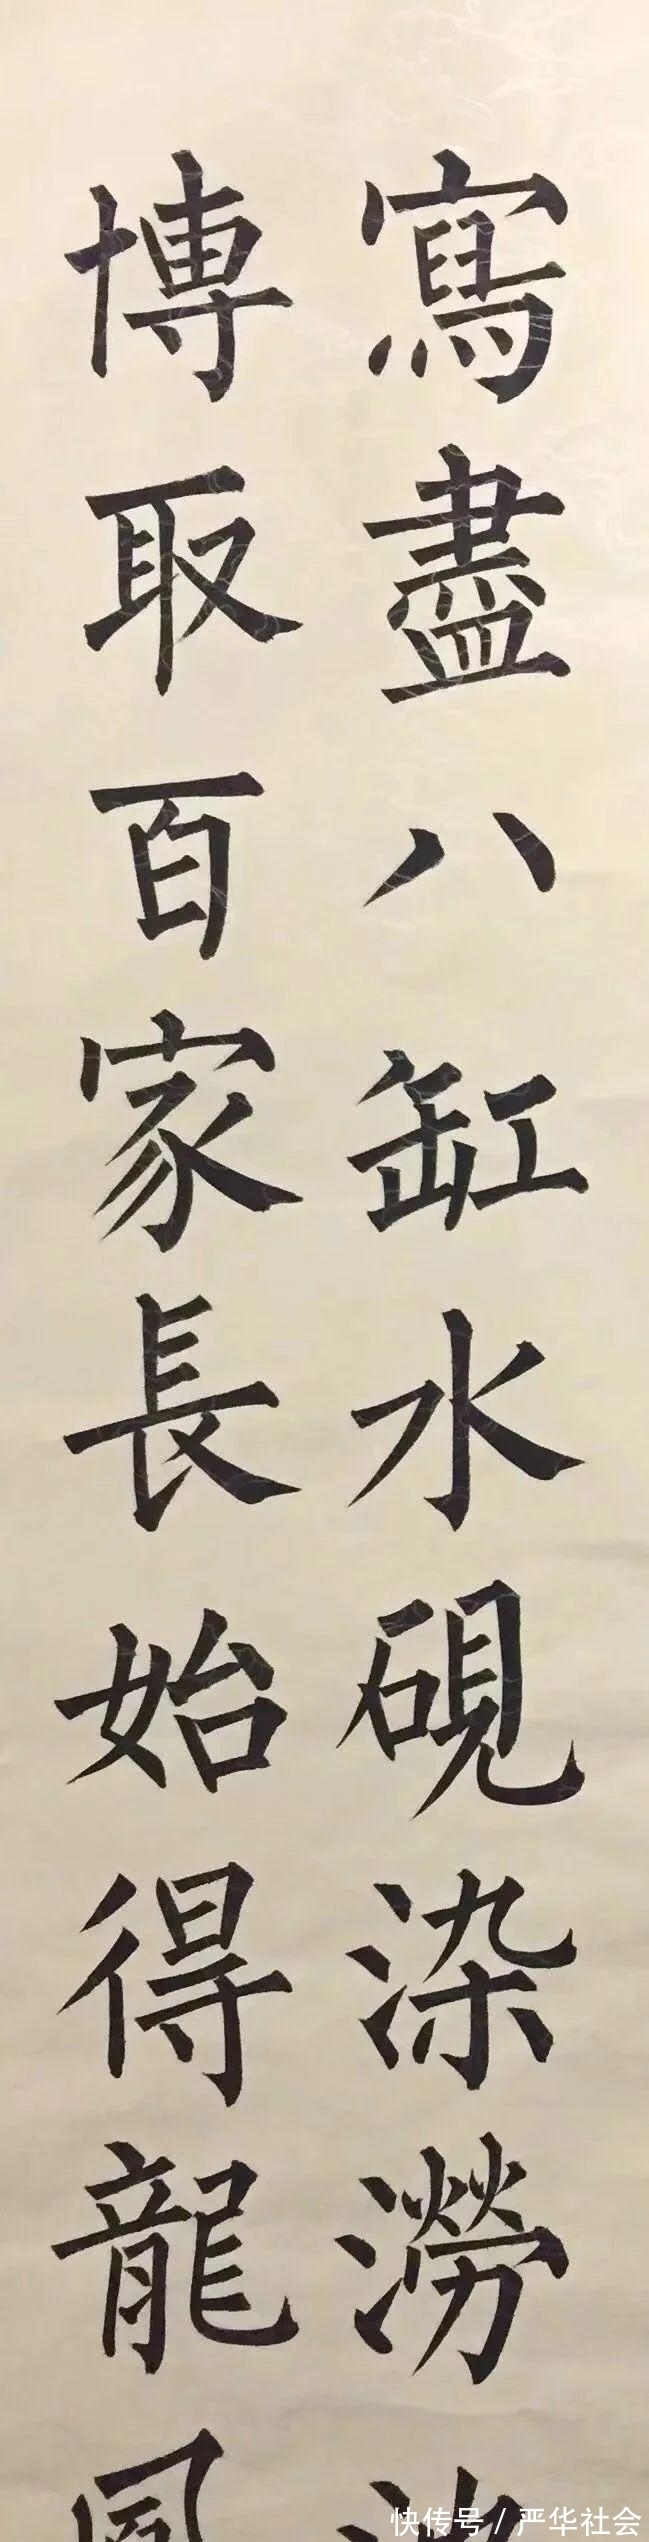 寫盡八缸水硯染澇
博取百家長始得龍
快传号/严华社会